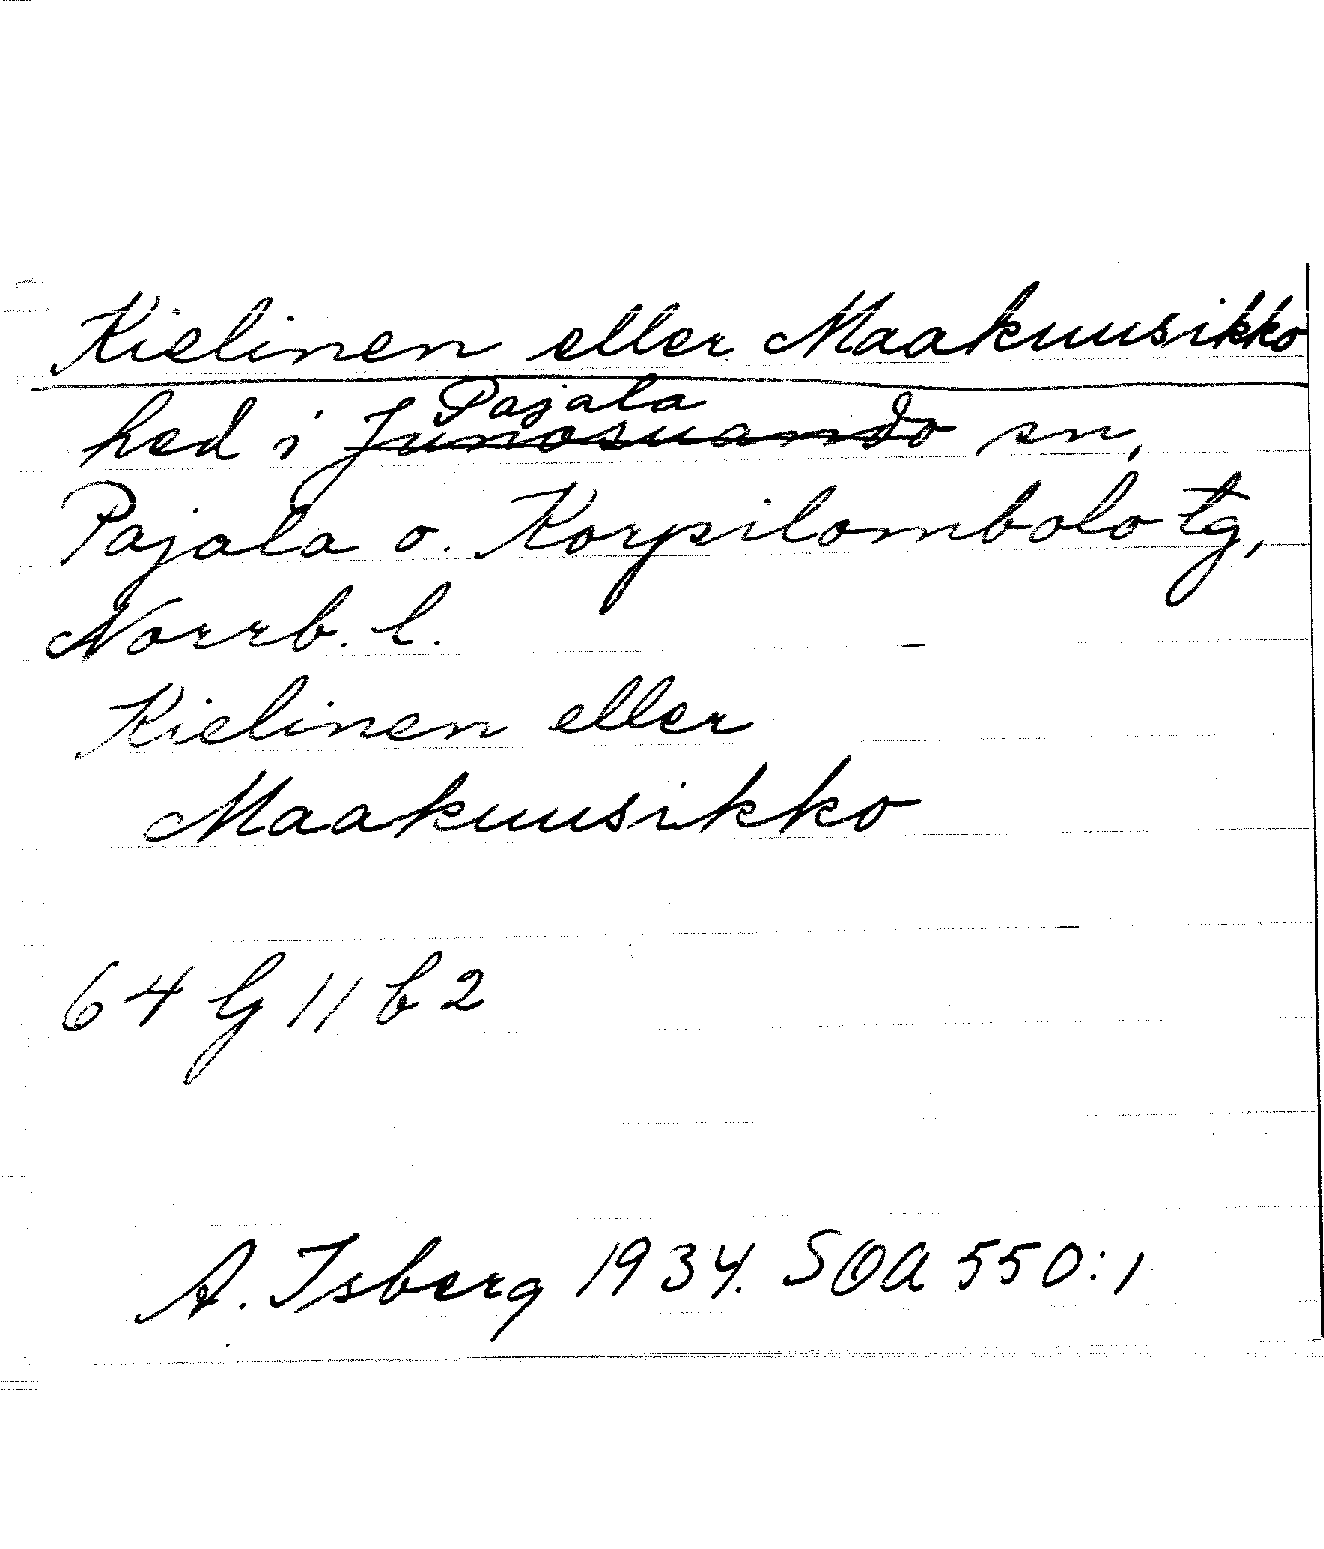 Kielinen eller Maakuusikko
hed i Junosuando Pajala sn,
Pajala o. Korpilombolo tg,
Norrb. l.
Kielinen eller
Maakuusikko
64 G 11 b 2
A. Isberg 1934. SOA 550:1